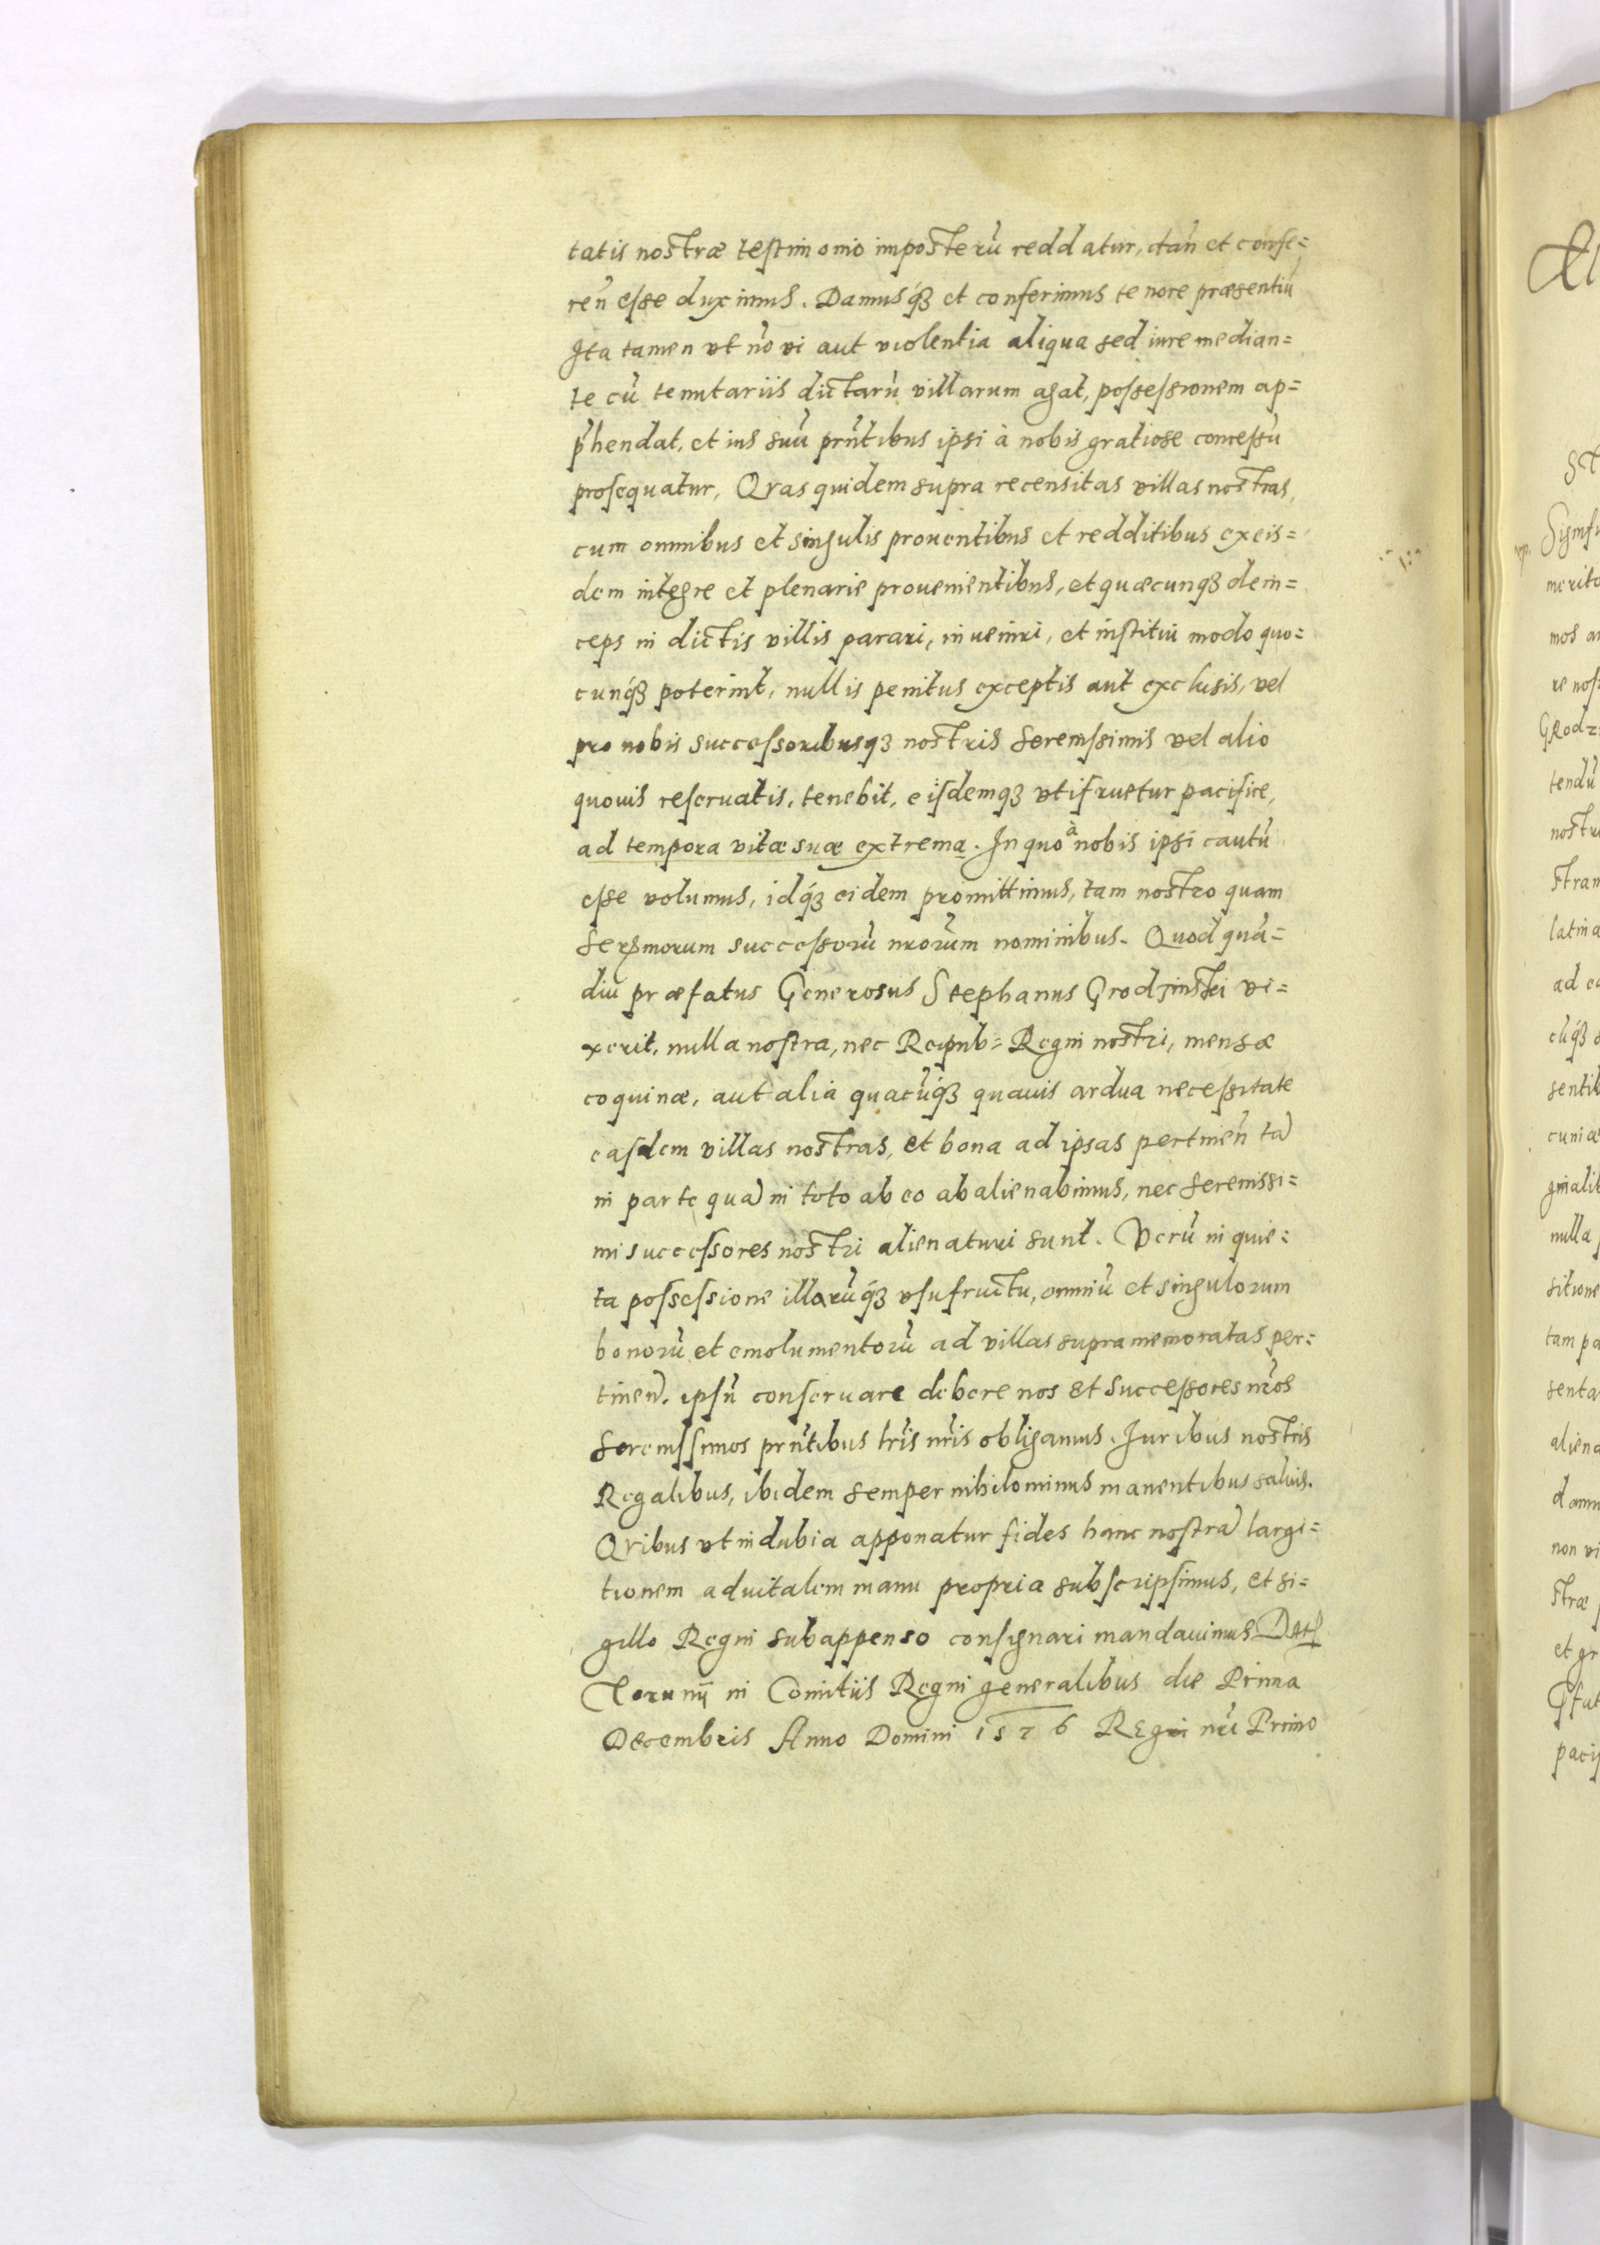 tatis nostræ testimonio imposterū reddatur, dan̄ et confe=
ren̄ esse duximus. Damusq́ꝫ et conferimus tenore præsentiū
Ita tamen vt nō vi aut violentia aliqua sed iure median=
te cū tenutariis dictarū villarum agat, possessionem ap=
p̄hendat, et ius suū prn̄tibus ipsi à nobis gratiose concessū
prosequatur, Qvas quidem supra recensitas villas nostras,
cum omnibus et singulis prouentibus et redditibus exeis=
dem integre et plenarie prouenientibus, et quæcunqꝫ dein=
ceps in dictis villis parari, inueniri, et institui modo quo=
cunq́ꝫ poterint, nullis penitus exceptis aut exclusis, vel
pro nobis successoribusqꝫ nostris Serenissimis vel alio
quouis reseruatis, tenebit, eisdemqꝫ vtifruetur pacifice,
ad tempora vitæ suæ extrema. In quo à nobis ipsi cautū
esse volumus, idq́ꝫ eidem promittimus, tam nostro quam
Serꝫmorum successorū nrorūm nominibus. Quod quā=
diu præfatus Generosus Stephanus Grodzinskj vi=
xerit, nulla nostra, nec Reipub= Regni nostri, mensæ
coquinæ, aut alia quacūq́ꝫ quauis ardua necessitate
easdem villas nostras, et bona ad ipsas pertinen̄ ta
in parte qua in toto ab eo abalienabimus, nec Serenissi=
mi successores nostri alienaturi sunt. Verū in quie=
ta possessione illarūq́ꝫ vsufructu, omniū et singulorum
bonorū et emolumentorū ad villas supra memoratas per=
tinen. ipsū conseruare debere nos et Successores nr̄os
Serenissimos prn̄tibus lr̄is nr̄is obligamus. Iuribus nostris
Regalibus, ibidem semper nihilominus manentibus saluis.
Qvibus vt indubia apponatur fides hanc nostra largi=
tionem aduitalem manu propria subscripsimus, et si=
gillo Regni subappenso consignari mandauimus Dat
Torunij in Comitiis Regni generalibus die Prima
Decembris Anno Domini 1576 Regni nr̄i Primo